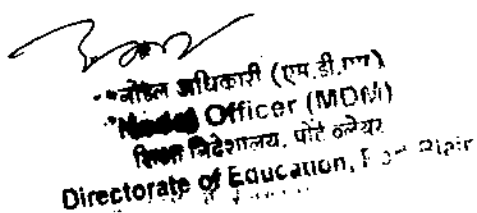 नोडल अधिकारी (एम.डी.एम)
Nodal Officer (MDM)
शिक्षा निदेशालय, पोर्ट ब्लेयर
Directorate of Education, Port Blair